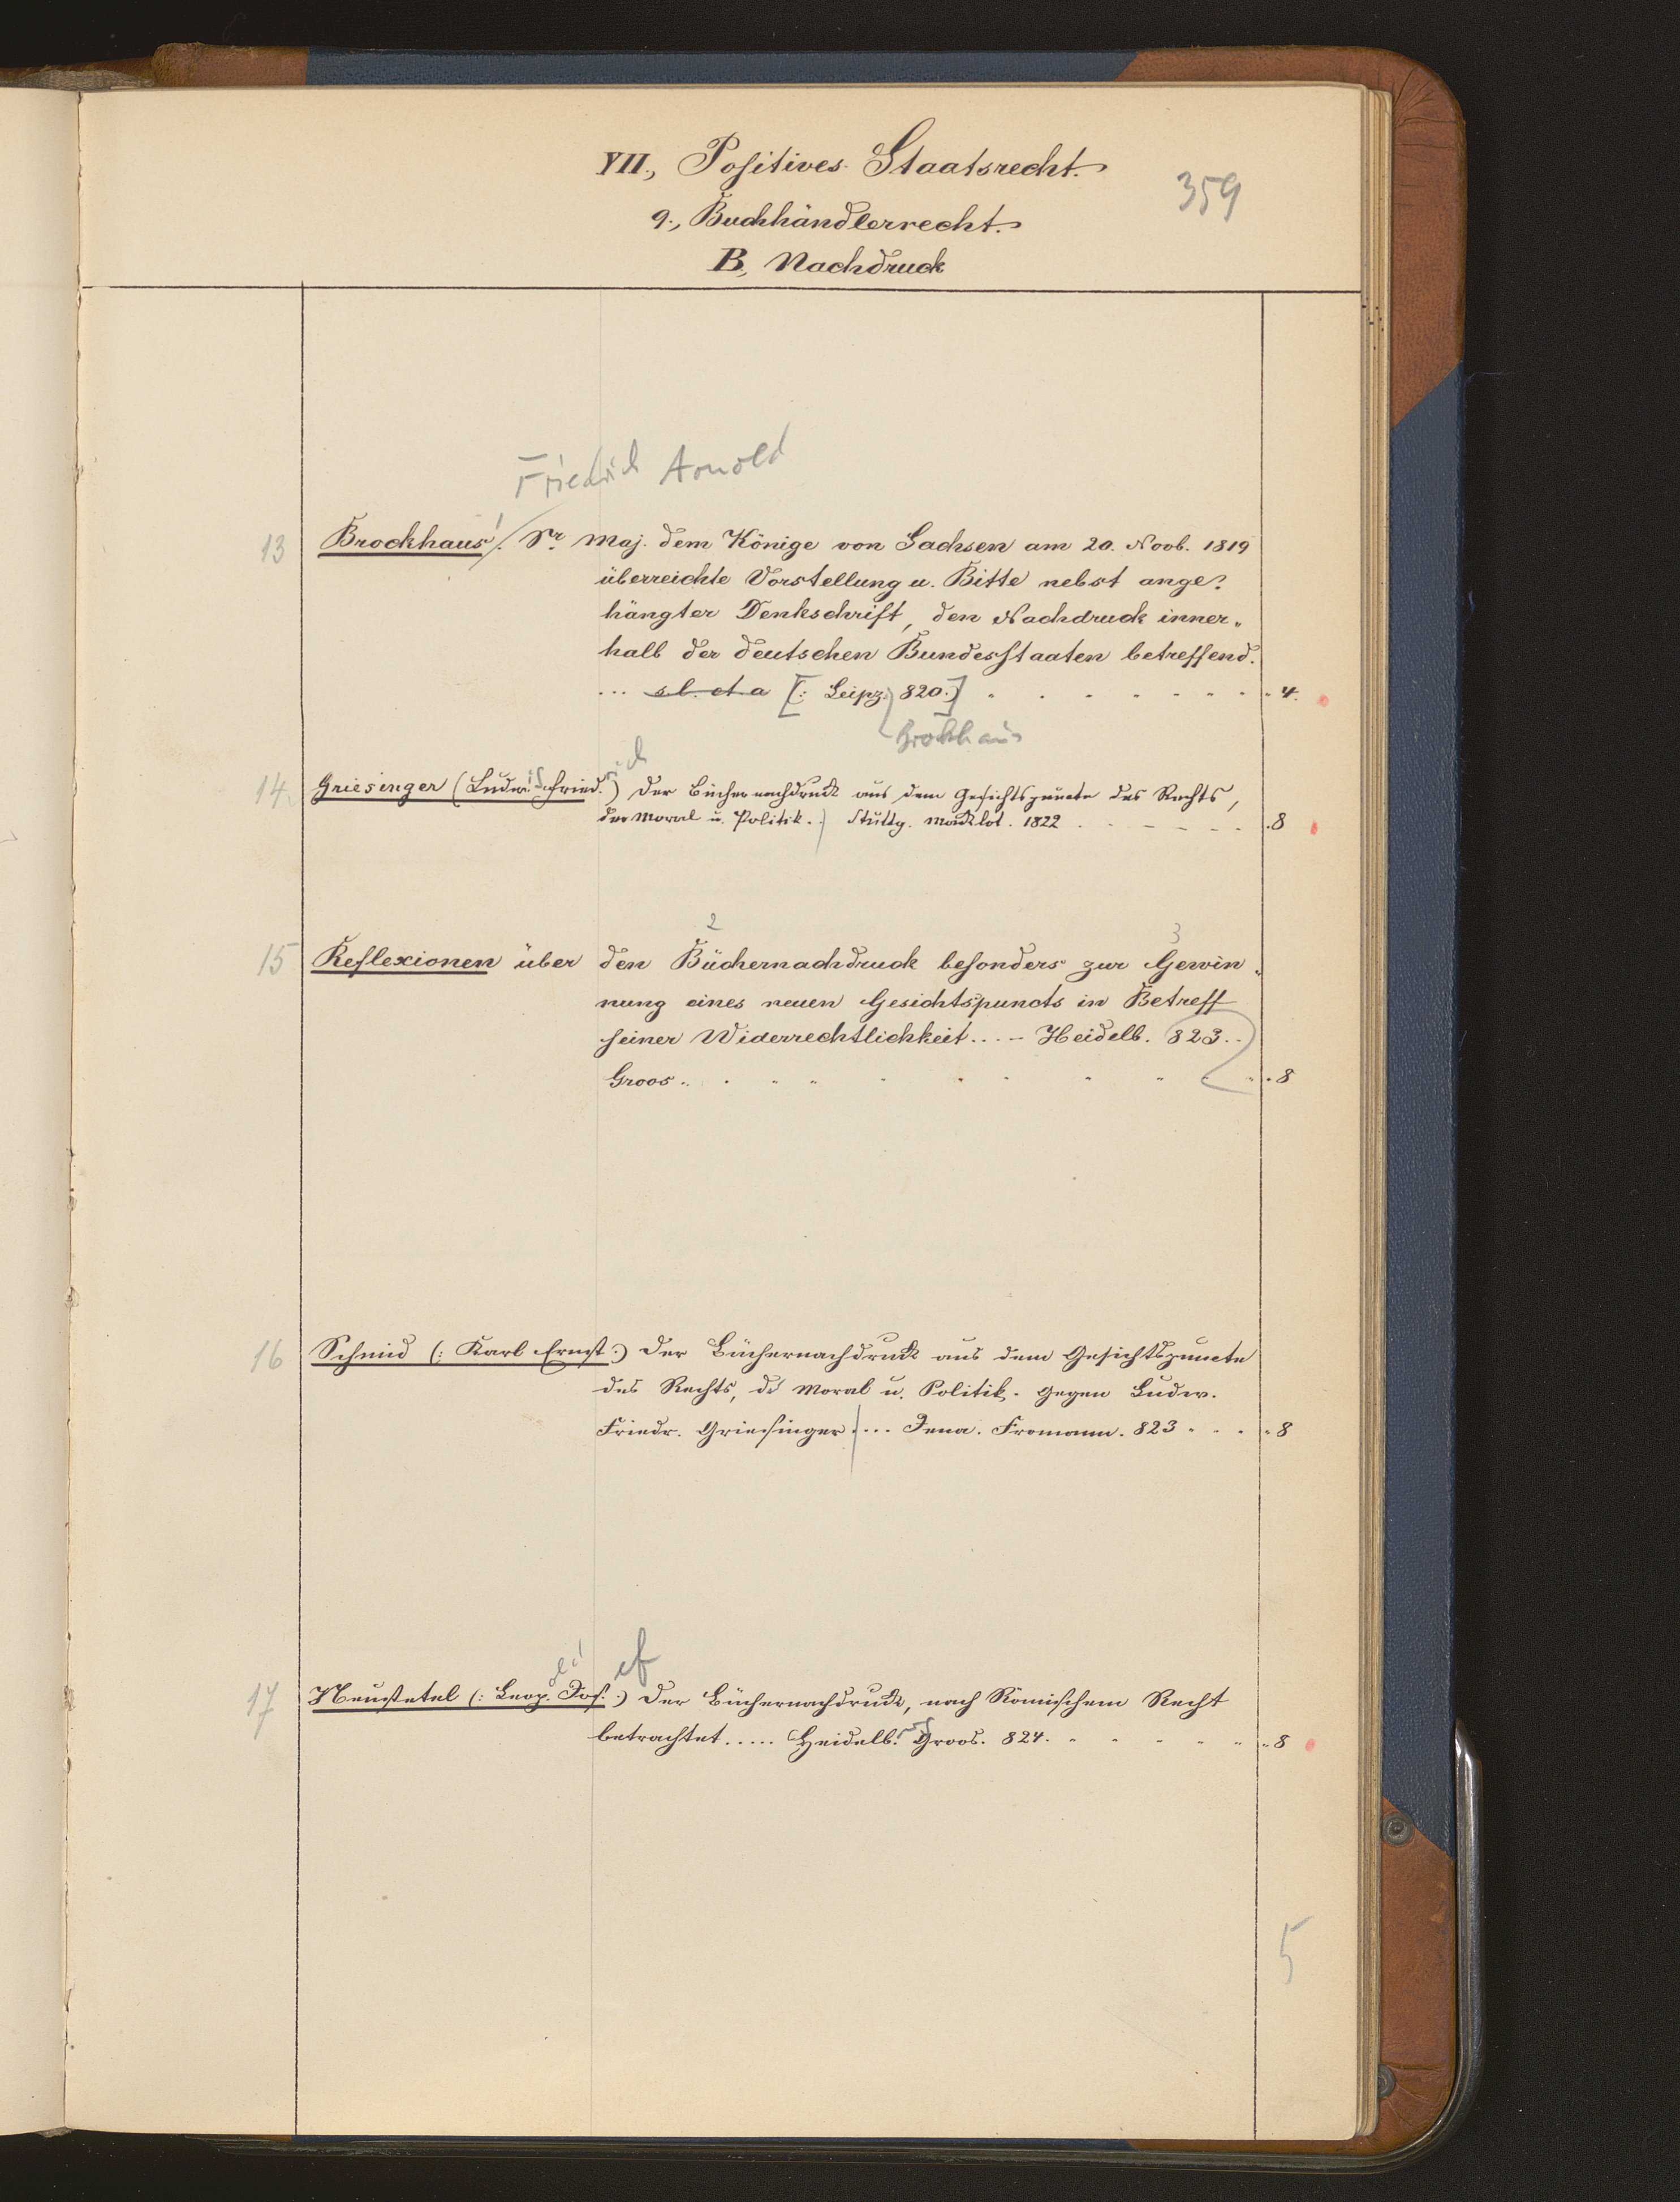 VII., Positives Staatsrecht.
359
9., Buchhändlerrecht.
B, Nachdruck
Friedrich Arnold
13 Brockhaus. Sr. Maj. dem Könige von Sachsen am 20. Novb. 1819
überreichte Vorstellung u. Bitte nebst ange-
hängter Denkschrift, den Nachdruck inner-
halb der deutschen Bundesstaaten betreffend.
... s l. et a [: Leipz. 820.] . . . . . . . 4.
Brockhaus
14. Griesinger (Ludw. Fried.) Der Büchernachdruck aus dem Gesichtspuncte des Rechts,
der Moral u. Politik. Stuttg. Macklot. 1822 . . . . . . 8
15 Reflexionen über den Büchernachdruck besonders zur Gewin-
nung eines neuen Gesichtspuncts in Betreff
seiner Widerrechtlichkeit.... Heidelb. 823..
Groos . . . . . . . . . 8
16 Schmid (: Karl Ernst :) Der Büchernachdruck aus dem Gesichtspuncte
des Rechts, dr Moral u. Politik. gegen Ludw.
Friedr. Griesinger.... Jena. Fromann. 823 . . . 8
17 Neustetel (: Leop. Jos. :) Der Büchernachdruck, nach Römischem Recht
betrachtet..... Heidelb. Groos. 824. . . . . . 8
5